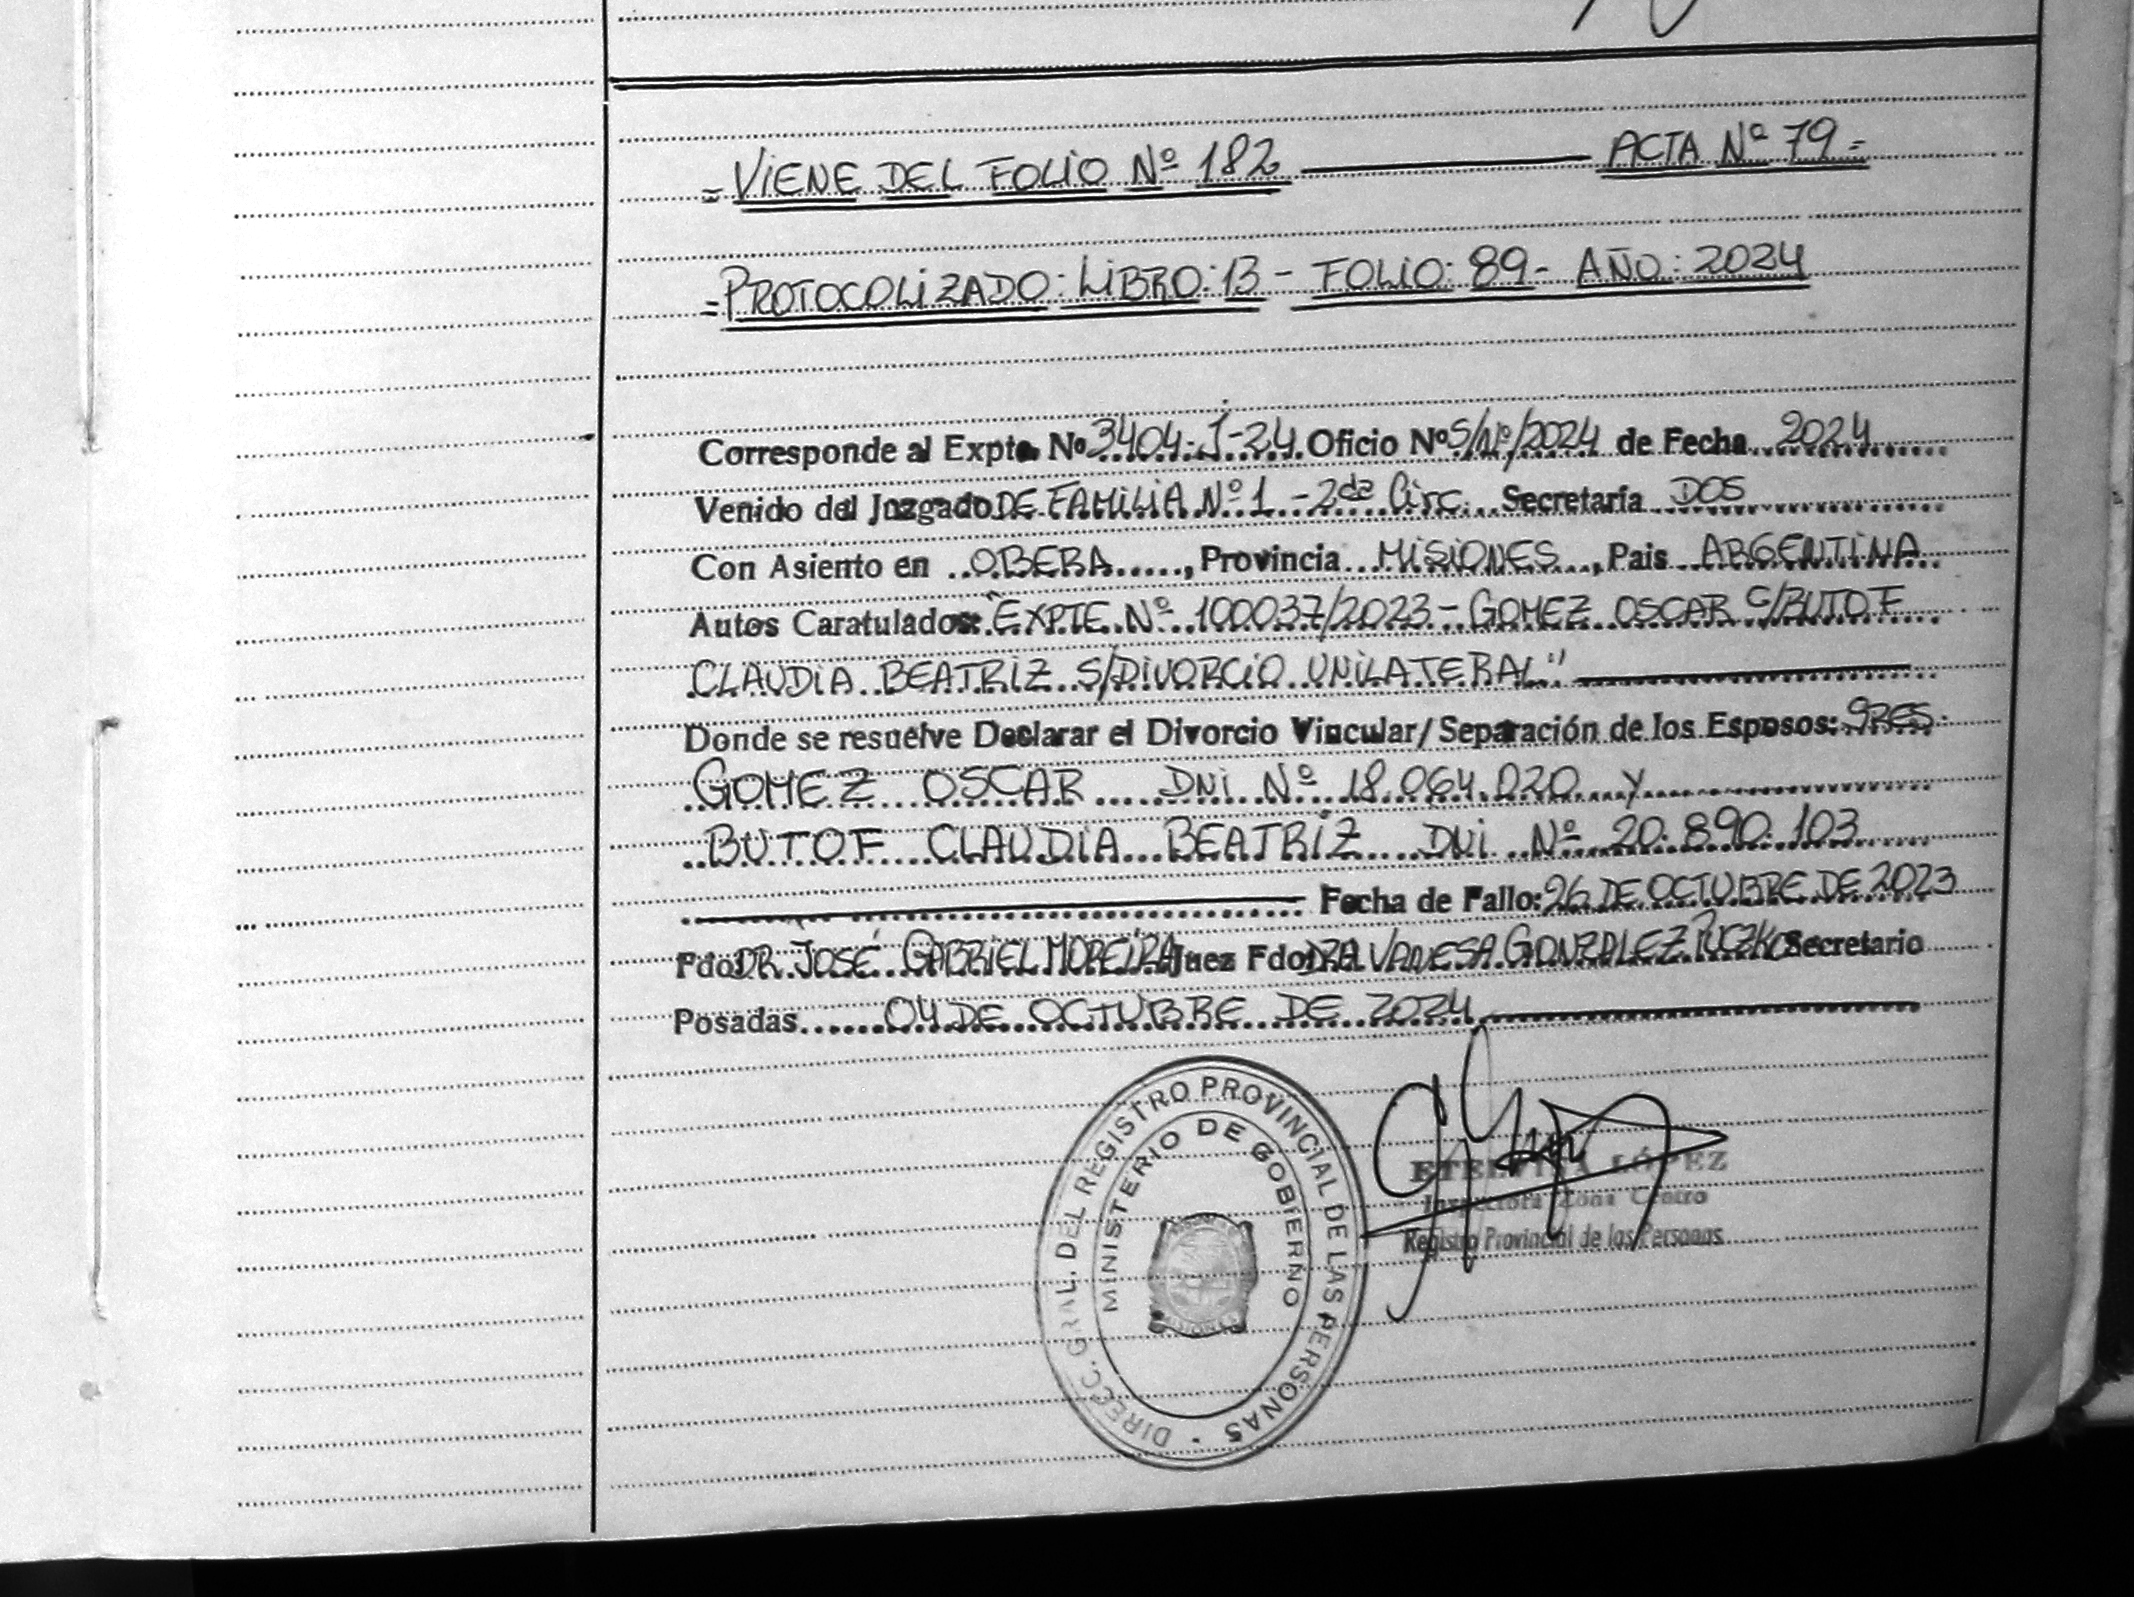 = VIENE DEL FOLIO Nº 182 ——— ACTA Nº 79 =
= PROTOCOLIZADO: LIBRO: 13 - FOLIO: 89 - AÑO: 2024
Corresponde al Expte. Nº 3404-J-24. Oficio Nº S/Nº/2024 de Fecha 2024
Venido del Juzgado DE FAMILIA Nº 1 - 2da Circ. Secretaría DOS
Con Asiento en OBERA, Provincia MISIONES, Pais ARGENTINA
Autos Caratulados: "EXPTE Nº 100037/2023 - GOMEZ OSCAR C/BUTOF
CLAUDIA BEATRIZ S/DIVORCIO UNILATERAL"
Donde se resuelve Declarar el Divorcio Vincular/Separación de los Esposos: SRES.
GOMEZ OSCAR DNI Nº 18.064.020 Y
BUTOF CLAUDIA BEATRIZ DNI Nº 20.890.103
Fecha de Fallo: 26 DE OCTUBRE DE 2023
Fdo DR. JOSÉ GABRIEL MOREIRA Juez Fdo DRA VANESA GONZALEZ PUCZKO Secretario
Posadas 04 DE OCTUBRE DE 2024
DIRECC. GRAL. DEL REGISTRO PROVINCIAL DE LAS PERSONAS
MINISTERIO DE GOBIERNO
ETELVINA LÓPEZ
Inspectora Zona Centro
Registro Provincial de las Personas